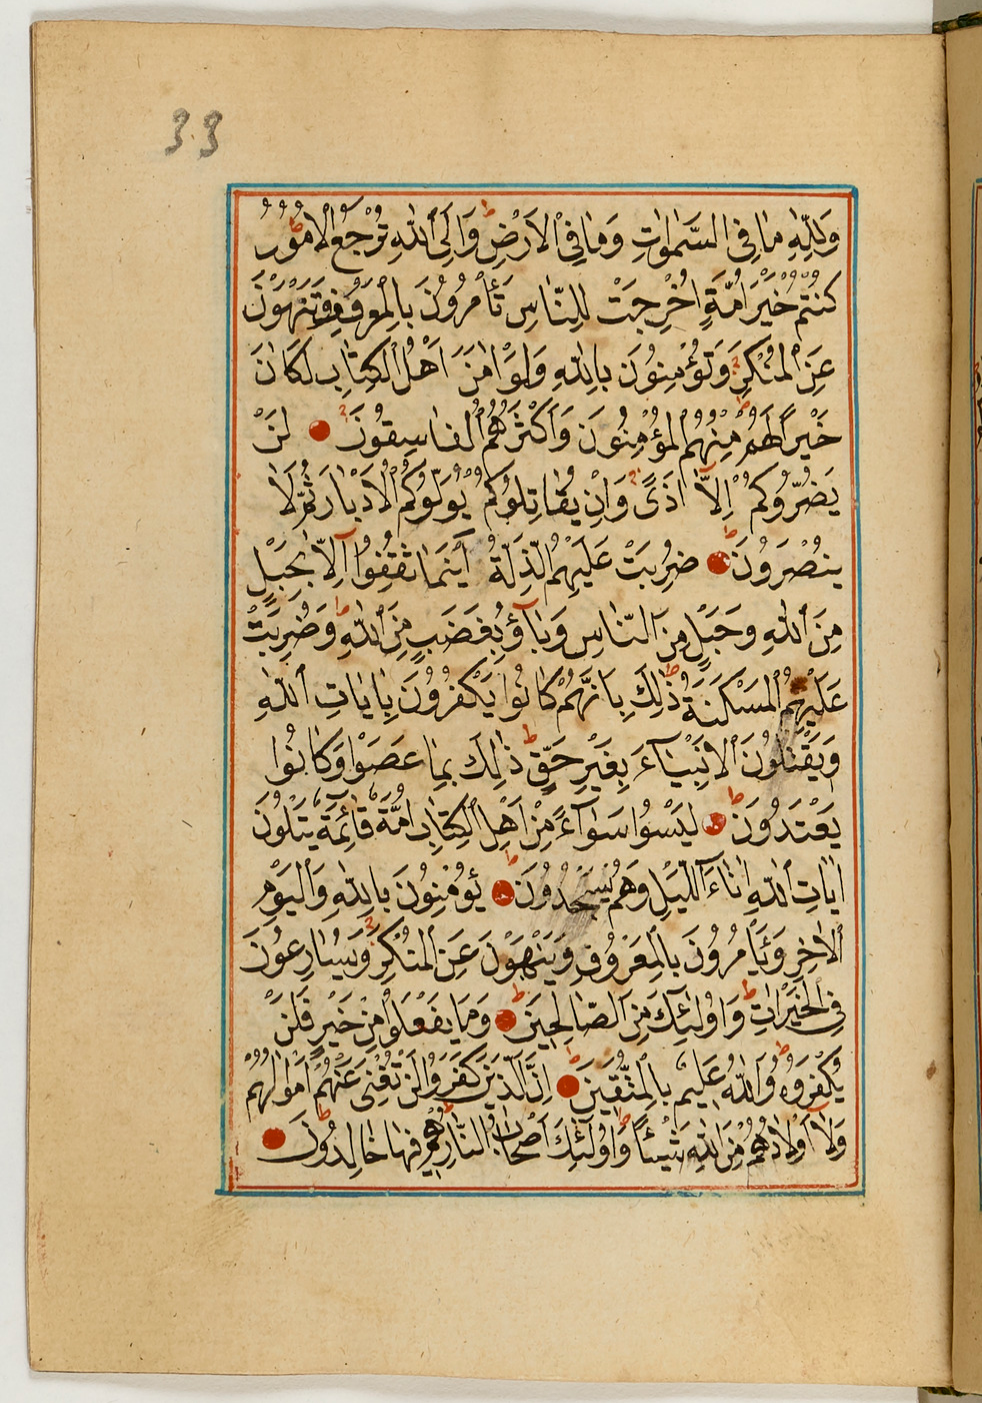 33
وَلِلّٰهِ مَا فِى السَّمٰوَاتِ وَمَا فِى الْاَرْضِ وَاِلَى اللّٰهِ تُرْجَعُ الْاُمُورُ
كُنْتُمْ خَيْرَ اُمَّةٍ اُخْرِجَتْ لِلنَّاسِ تَأْمُرُونَ بِالْمَعْرُوفِ وَتَنْهَوْنَ
عَنِ الْمُنْكَرِ وَتُؤْمِنُونَ بِاللّٰهِ وَلَوْ اٰمَنَ اَهْلُ الْكِتَابِ لَكَانَ
خَيْرًا لَهُمْ مِنْهُمُ الْمُؤْمِنُونَ وَاَكْثَرُهُمُ الْفَاسِقُونَ لَنْ
يَضُرُّوكُمْ اِلَّا اَذًى وَاِنْ يُقَاتِلُوكُمْ يُوَلُّوكُمُ الْاَدْبَارَ ثُمَّ لَا
يُنْصَرُونَ ضُرِبَتْ عَلَيْهِمُ الذِّلَّةُ اَيْنَمَا ثُقِفُوا اِلَّا بِحَبْلٍ
مِنَ اللّٰهِ وَحَبْلٍ مِنَ النَّاسِ وَبَآؤُ بِغَضَبٍ مِنَ اللّٰهِ وَضُرِبَتْ
عَلَيْهِمُ الْمَسْكَنَةُ ذٰلِكَ بِاَنَّهُمْ كَانُوا يَكْفُرُونَ بِاٰيَاتِ اللّٰهِ
وَيَقْتُلُونَ الْاَنْبِيَآءَ بِغَيْرِ حَقٍّ ذٰلِكَ بِمَا عَصَوْا وَكَانُوا
يَعْتَدُونَ لَيْسُوا سَوَآءً مِنْ اَهْلِ الْكِتَابِ اُمَّةٌ قَائِمَةٌ يَتْلُونَ
اٰيَاتِ اللّٰهِ اٰنَآءَ اللَّيْلِ وَهُمْ يَسْجُدُونَ يُؤْمِنُونَ بِاللّٰهِ وَالْيَوْمِ
الْاٰخِرِ وَيَأْمُرُونَ بِالْمَعْرُوفِ وَيَنْهَوْنَ عَنِ الْمُنْكَرِ وَيُسَارِعُونَ
فِى الْخَيْرَاتِ وَاُولٰئِكَ مِنَ الصَّالِحِينَ وَمَا يَفْعَلُوا مِنْ خَيْرٍ فَلَنْ
يُكْفَرُوهُ وَاللّٰهُ عَلِيمٌ بِالْمُتَّقِينَ اِنَّ الَّذِينَ كَفَرُوا لَنْ تُغْنِىَ عَنْهُمْ اَمْوَالُهُمْ
وَلَا اَوْلَادُهُمْ مِنَ اللّٰهِ شَيْئًا وَاُولٰئِكَ اَصْحَابُ النَّارِ هُمْ فِيهَا خَالِدُونَ